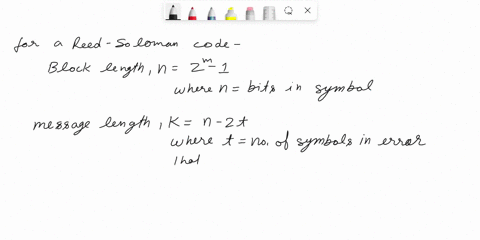 for a Reed-Soloman code-
Block length, n = 2^m - 1
where n = bits in symbol
message length, K = n - 2t
where t = no. of symbols in error
that